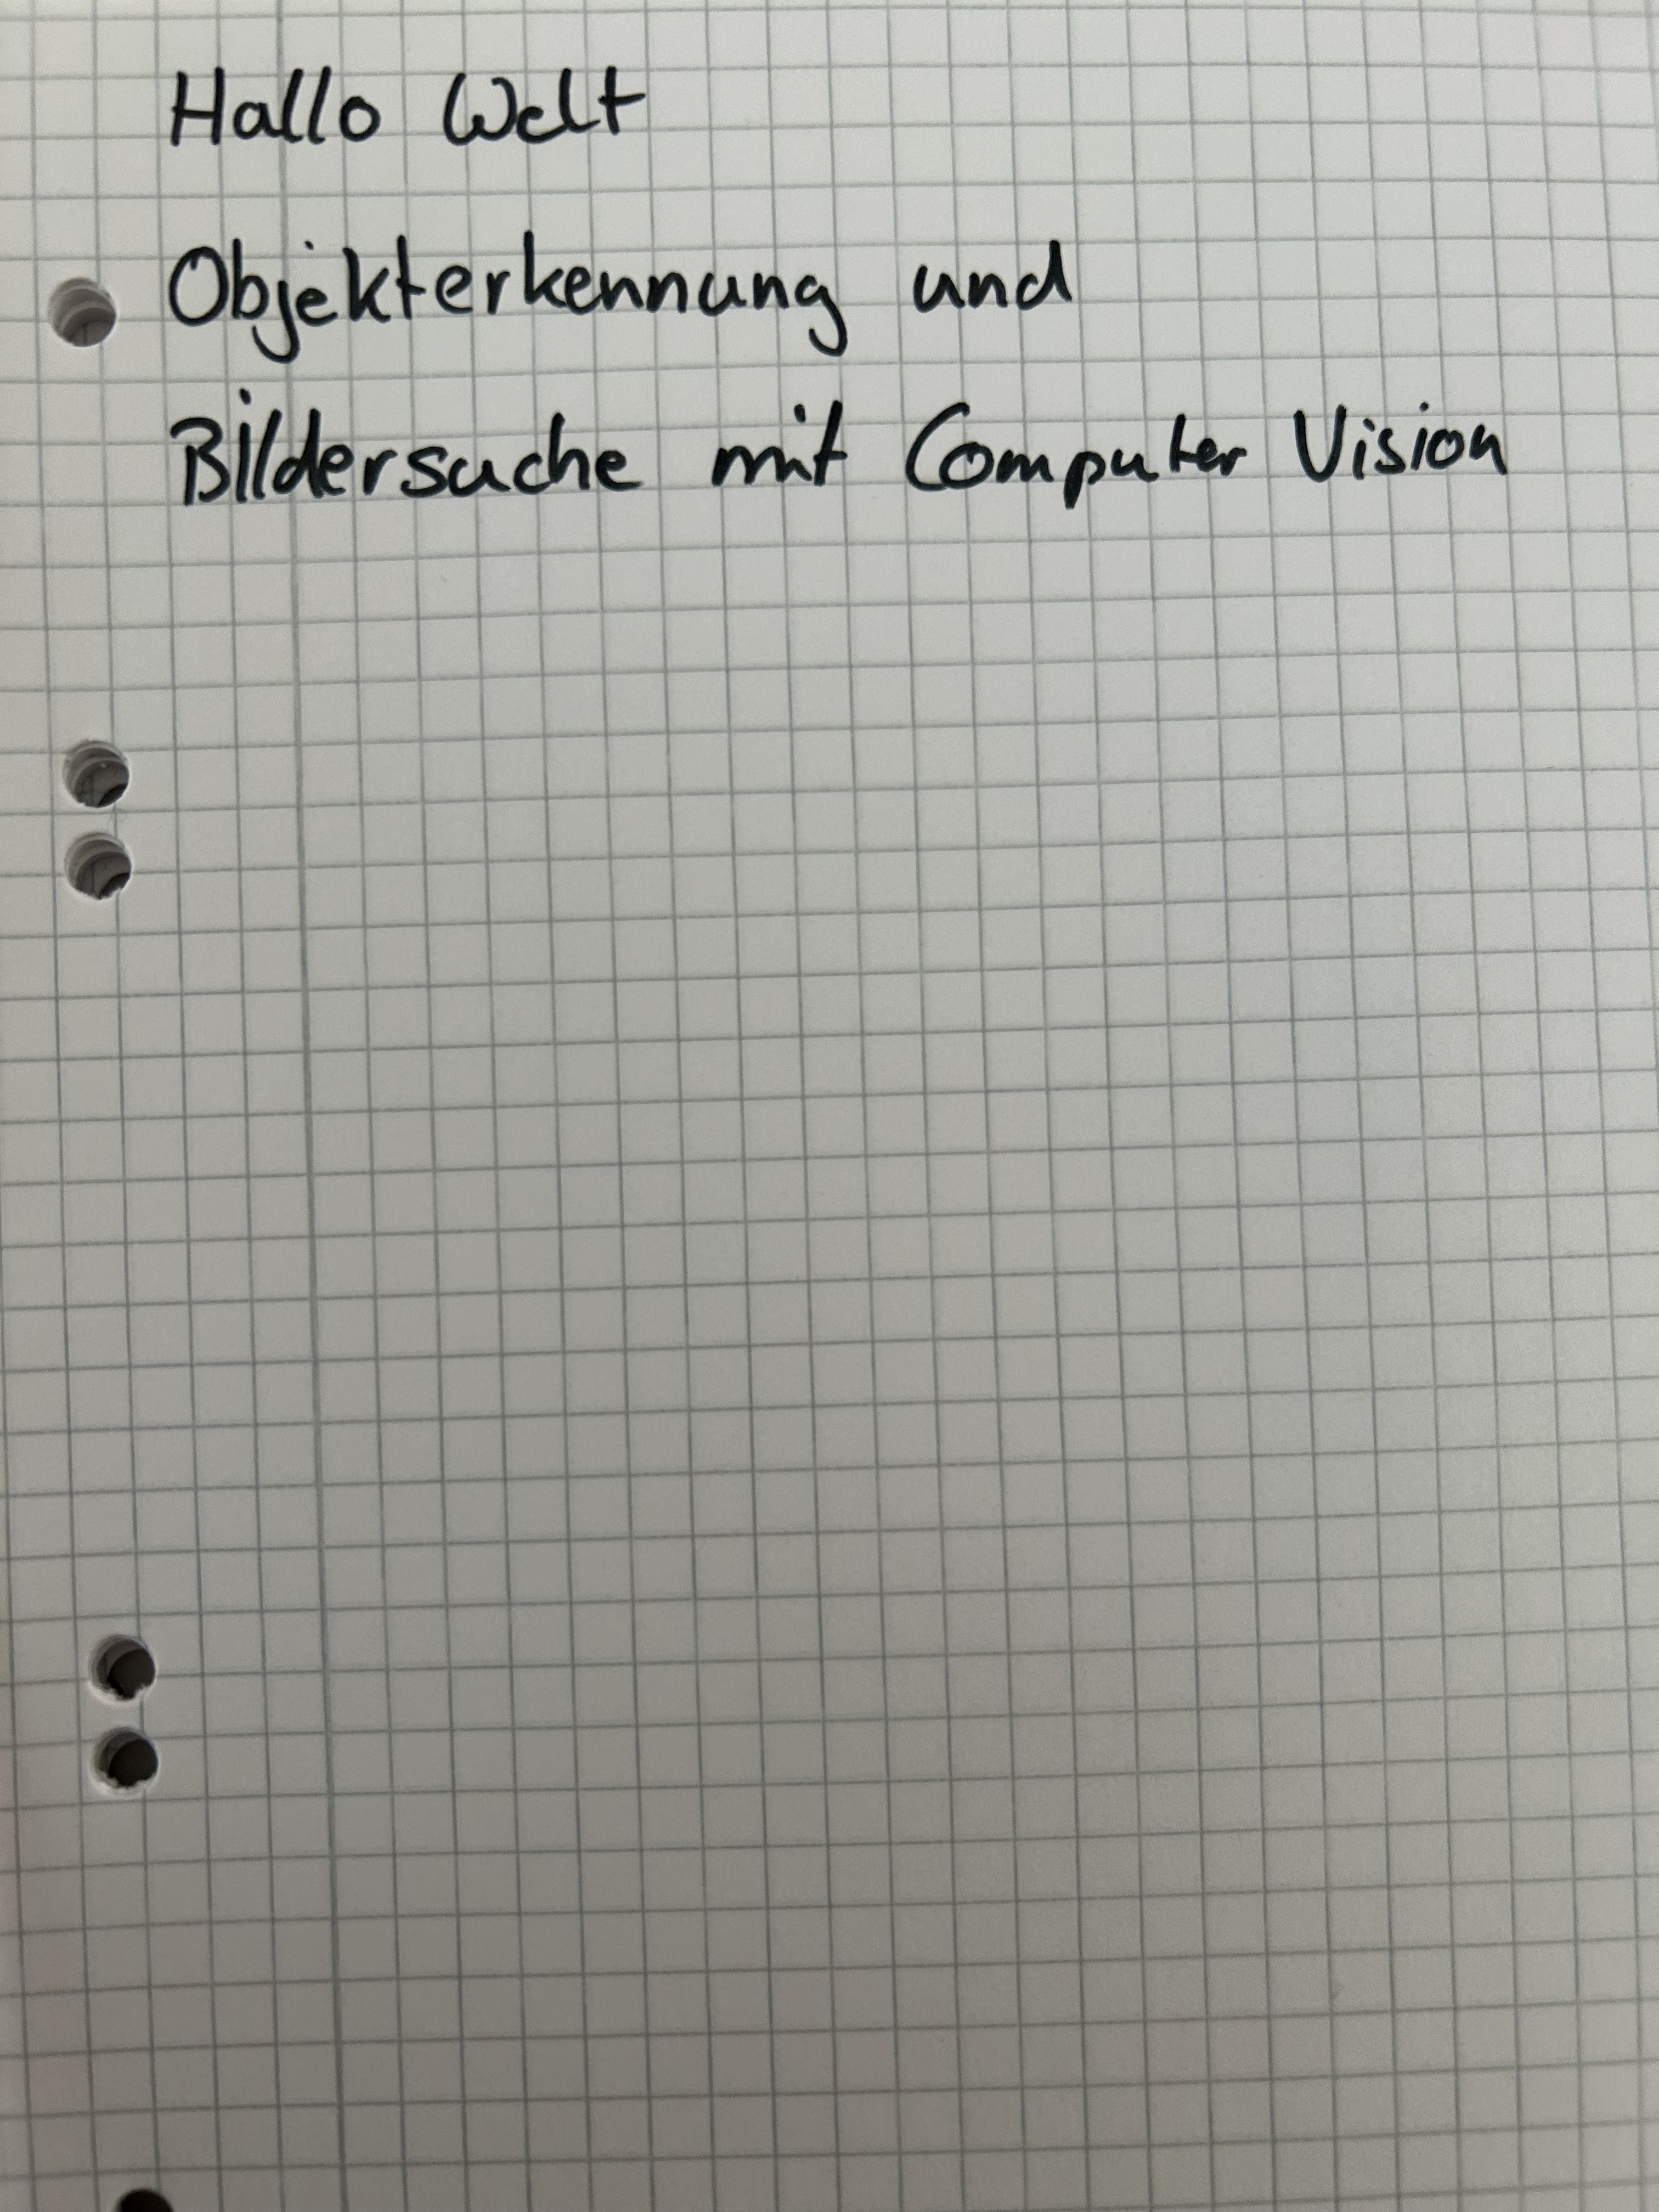 Hallo Welt
Objekterkennung und
Bildersuche mit Computer Vision